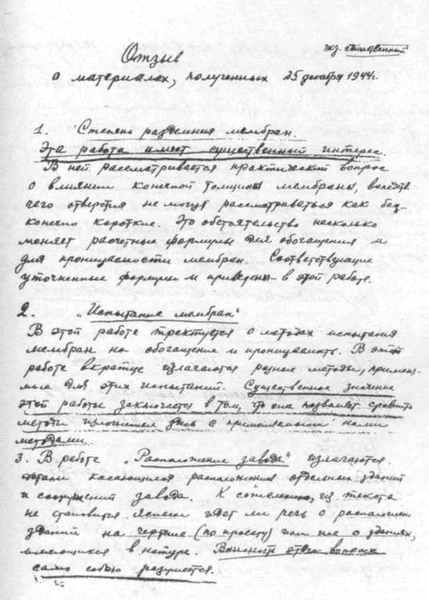 экз. единственный
Отзыв
о материалах, полученных 25 декабря 1944г.
1. Степень разделения мембран.
Эта работа имеет существенный интерес.
В ней рассматривается практический вопрос
о влиянии конечной толщины мембраны, вследств.
чего отверстия не могут рассматриваться как бес-
конечно короткие. Это обстоятельство несколько
меняет расчетные формулы для обогащения и
для проницаемости мембран. Соответствующие
уточненные формулы и приведены в этой работе.
2. „Испытание мембран"
В этой работе трактуется о методах испытания
мембран на обогащение и проницаемость. В этой
работе вкратце излагаются разные методы, применя-
мые для этих испытаний. Существенное значение
этой работы заключается в том, что она позволяет сравнить
методы изложенные здесь с применяемыми нами
методами.
3. В работе „Расположение завода" излагаются
детали касающиеся расположения отдельных зданий
и сооружений завода. К сожалению, из текста
не становится ясным идет ли речь о расположении
зданий на чертеже (по проекту) или же о зданиях,
имеющихся в натуре. Выяснить этот вопрос
само собою разумеется.